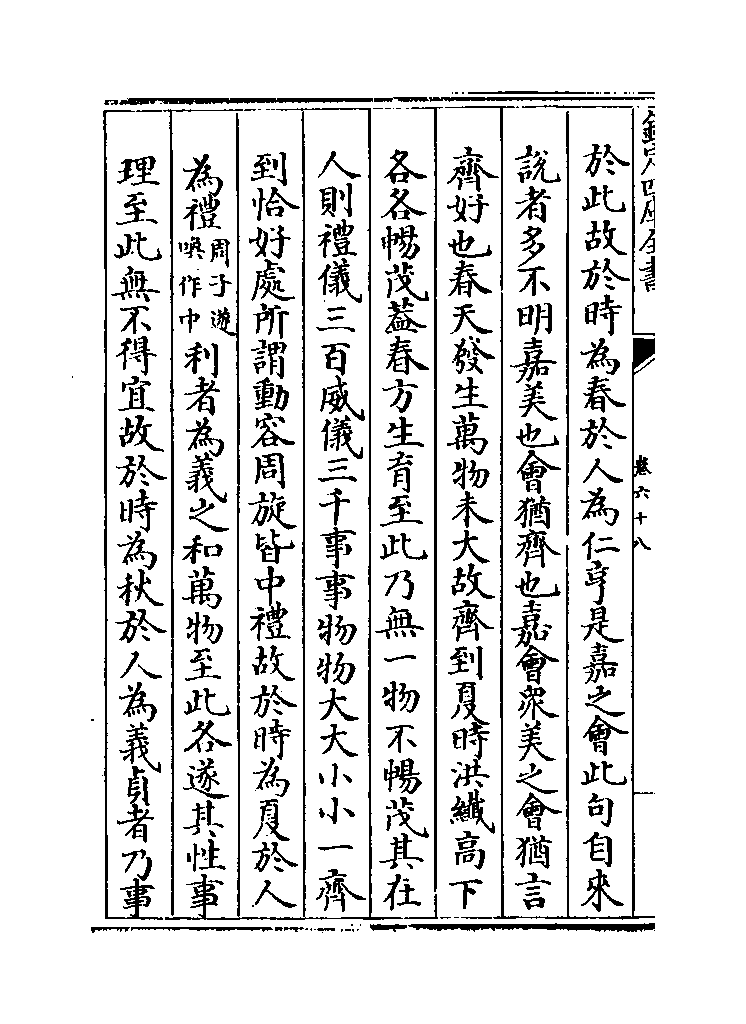 欽定四庫全書
卷六十八
於此故於時為春於人為仁亨是嘉之會此句自來
説者多不明嘉美也會猶齊也嘉會衆美之會猶言
齊好也春天發生萬物未大故齊到夏時洪纖高下
各各暢茂葢春方生育至此乃無一物不暢茂其在
人則禮儀三百威儀三千事事物物大大小小一齊
到恰好處所謂動容周旋皆中禮故於時為夏於人
為禮周子遂喚作中利者為義之和萬物至此各遂其性事
理至此無不得宜故於時為秋於人為義貞者乃事